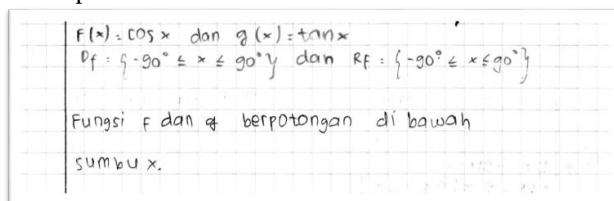 F(x) = cos x dan g(x) = tan x
Df : {-90° ≤ x ≤ 90°} dan RF : {-90° ≤ x ≤ 90°}
Fungsi F dan g berpotongan di bawah
sumbu x.